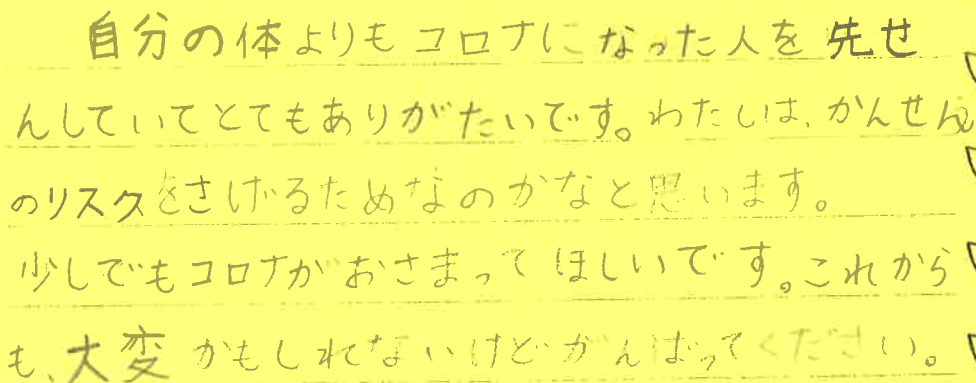 自分の体よりもコロナになった人を先せ
んしていてとてもありがたいです。わたしは、かんせん
のリスクをさげるためなのかなと思います。
少しでもコロナがおさまってほしいです。これから
も、大変かもしれないけどがんばってください。